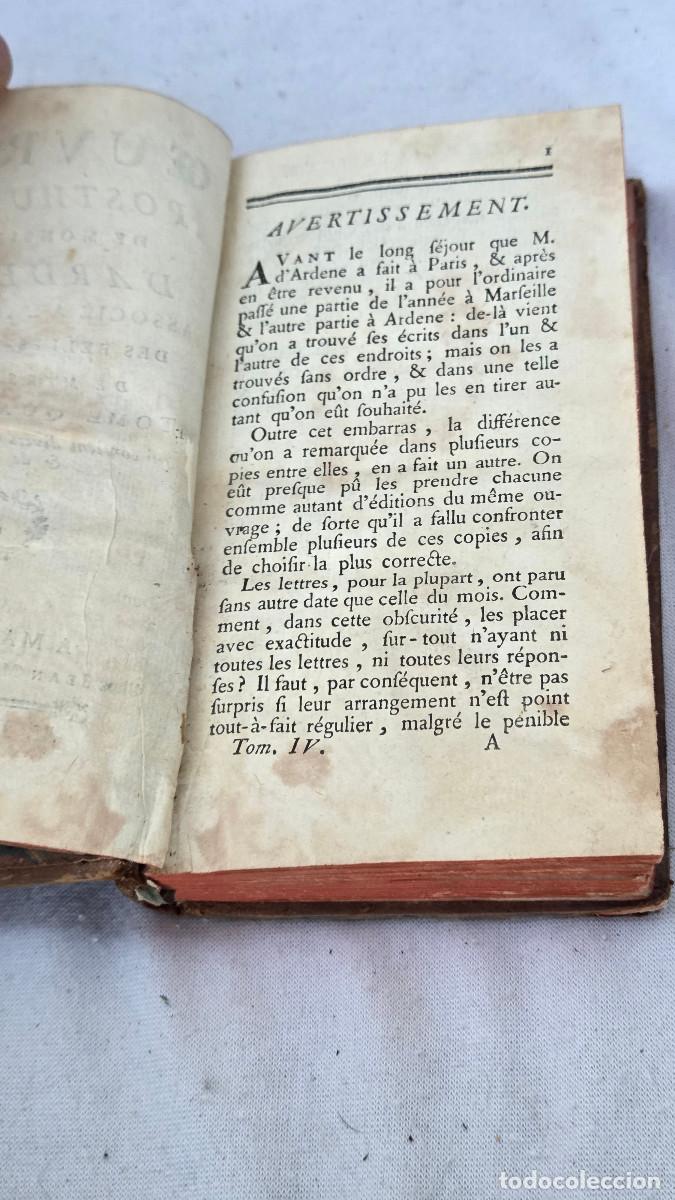 ŒUVR
POSTHU
DE MON
D'ARDE
ASSOCIÉ
DES BEL
DE M
TOME QUA
A MA
JEAN
1
AVERTISSEMENT.
AVANT le long ſéjour que M.
d'Ardene a fait à Paris, & après
en être revenu, il a pour l'ordinaire
paſſé une partie de l'année à Marſeille
& l'autre partie à Ardene : de-là vient
qu'on a trouvé ſes écrits dans l'un &
l'autre de ces endroits ; mais on les a
trouvés ſans ordre, & dans une telle
confuſion qu'on n'a pu les en tirer au-
tant qu'on eût ſouhaité.
Outre cet embarras, la différence
qu'on a remarquée dans pluſieurs co-
pies entre elles, en a fait un autre. On
eût preſque pû les prendre chacune
comme autant d'éditions du même ou-
vrage ; de ſorte qu'il a fallu confronter
enſemble pluſieurs de ces copies, afin
de choiſir la plus correcte.
Les lettres, pour la plupart, ont paru
ſans autre date que celle du mois. Com-
ment, dans cette obſcurité, les placer
avec exactitude, ſur-tout n'ayant ni
toutes les lettres, ni toutes leurs répon-
ſes ? Il faut, par conſéquent, n'être pas
ſurpris ſi leur arrangement n'eſt point
tout-à-fait régulier, malgré le pénible
Tom. IV. A
todocoleccion